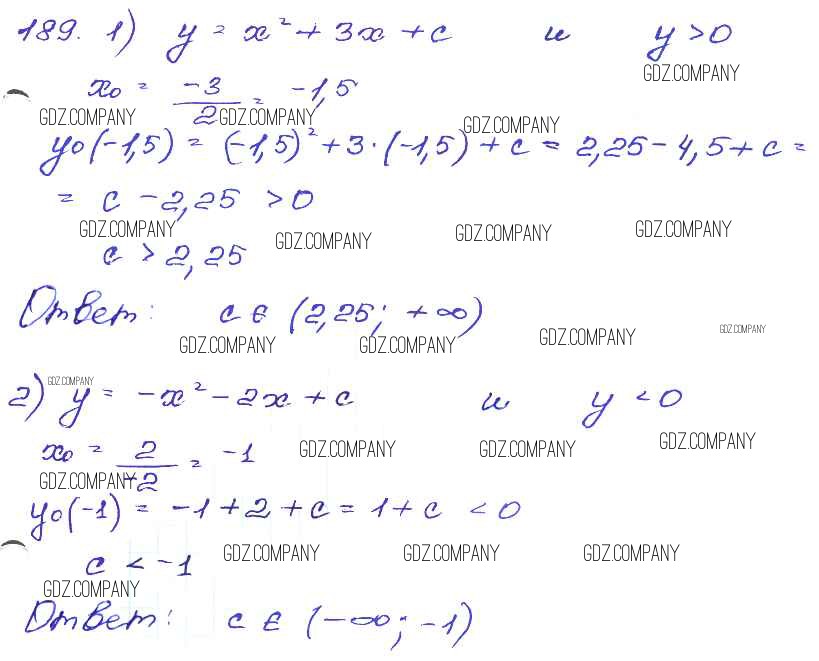 189. 1) y = x² + 3x + c и y > 0
GDZ.COMPANY
x₀ = -3/2 = -1,5
GDZ.COMPANY GDZ.COMPANY GDZ.COMPANY
y₀(-1,5) = (-1,5)² + 3·(-1,5) + c = 2,25 - 4,5 + c =
= c - 2,25 > 0
GDZ.COMPANY GDZ.COMPANY GDZ.COMPANY GDZ.COMPANY
c > 2,25
Ответ: c ∈ (2,25; +∞)
GDZ.COMPANY GDZ.COMPANY GDZ.COMPANY GDZ.COMPANY
GDZ.COMPANY
2) y = -x² - 2x + c и y < 0
x₀ = 2/-2 = -1
GDZ.COMPANY GDZ.COMPANY GDZ.COMPANY
GDZ.COMPANY
y₀(-1) = -1 + 2 + c = 1 + c < 0
c < -1
GDZ.COMPANY GDZ.COMPANY GDZ.COMPANY
GDZ.COMPANY
Ответ: c ∈ (-∞; -1)